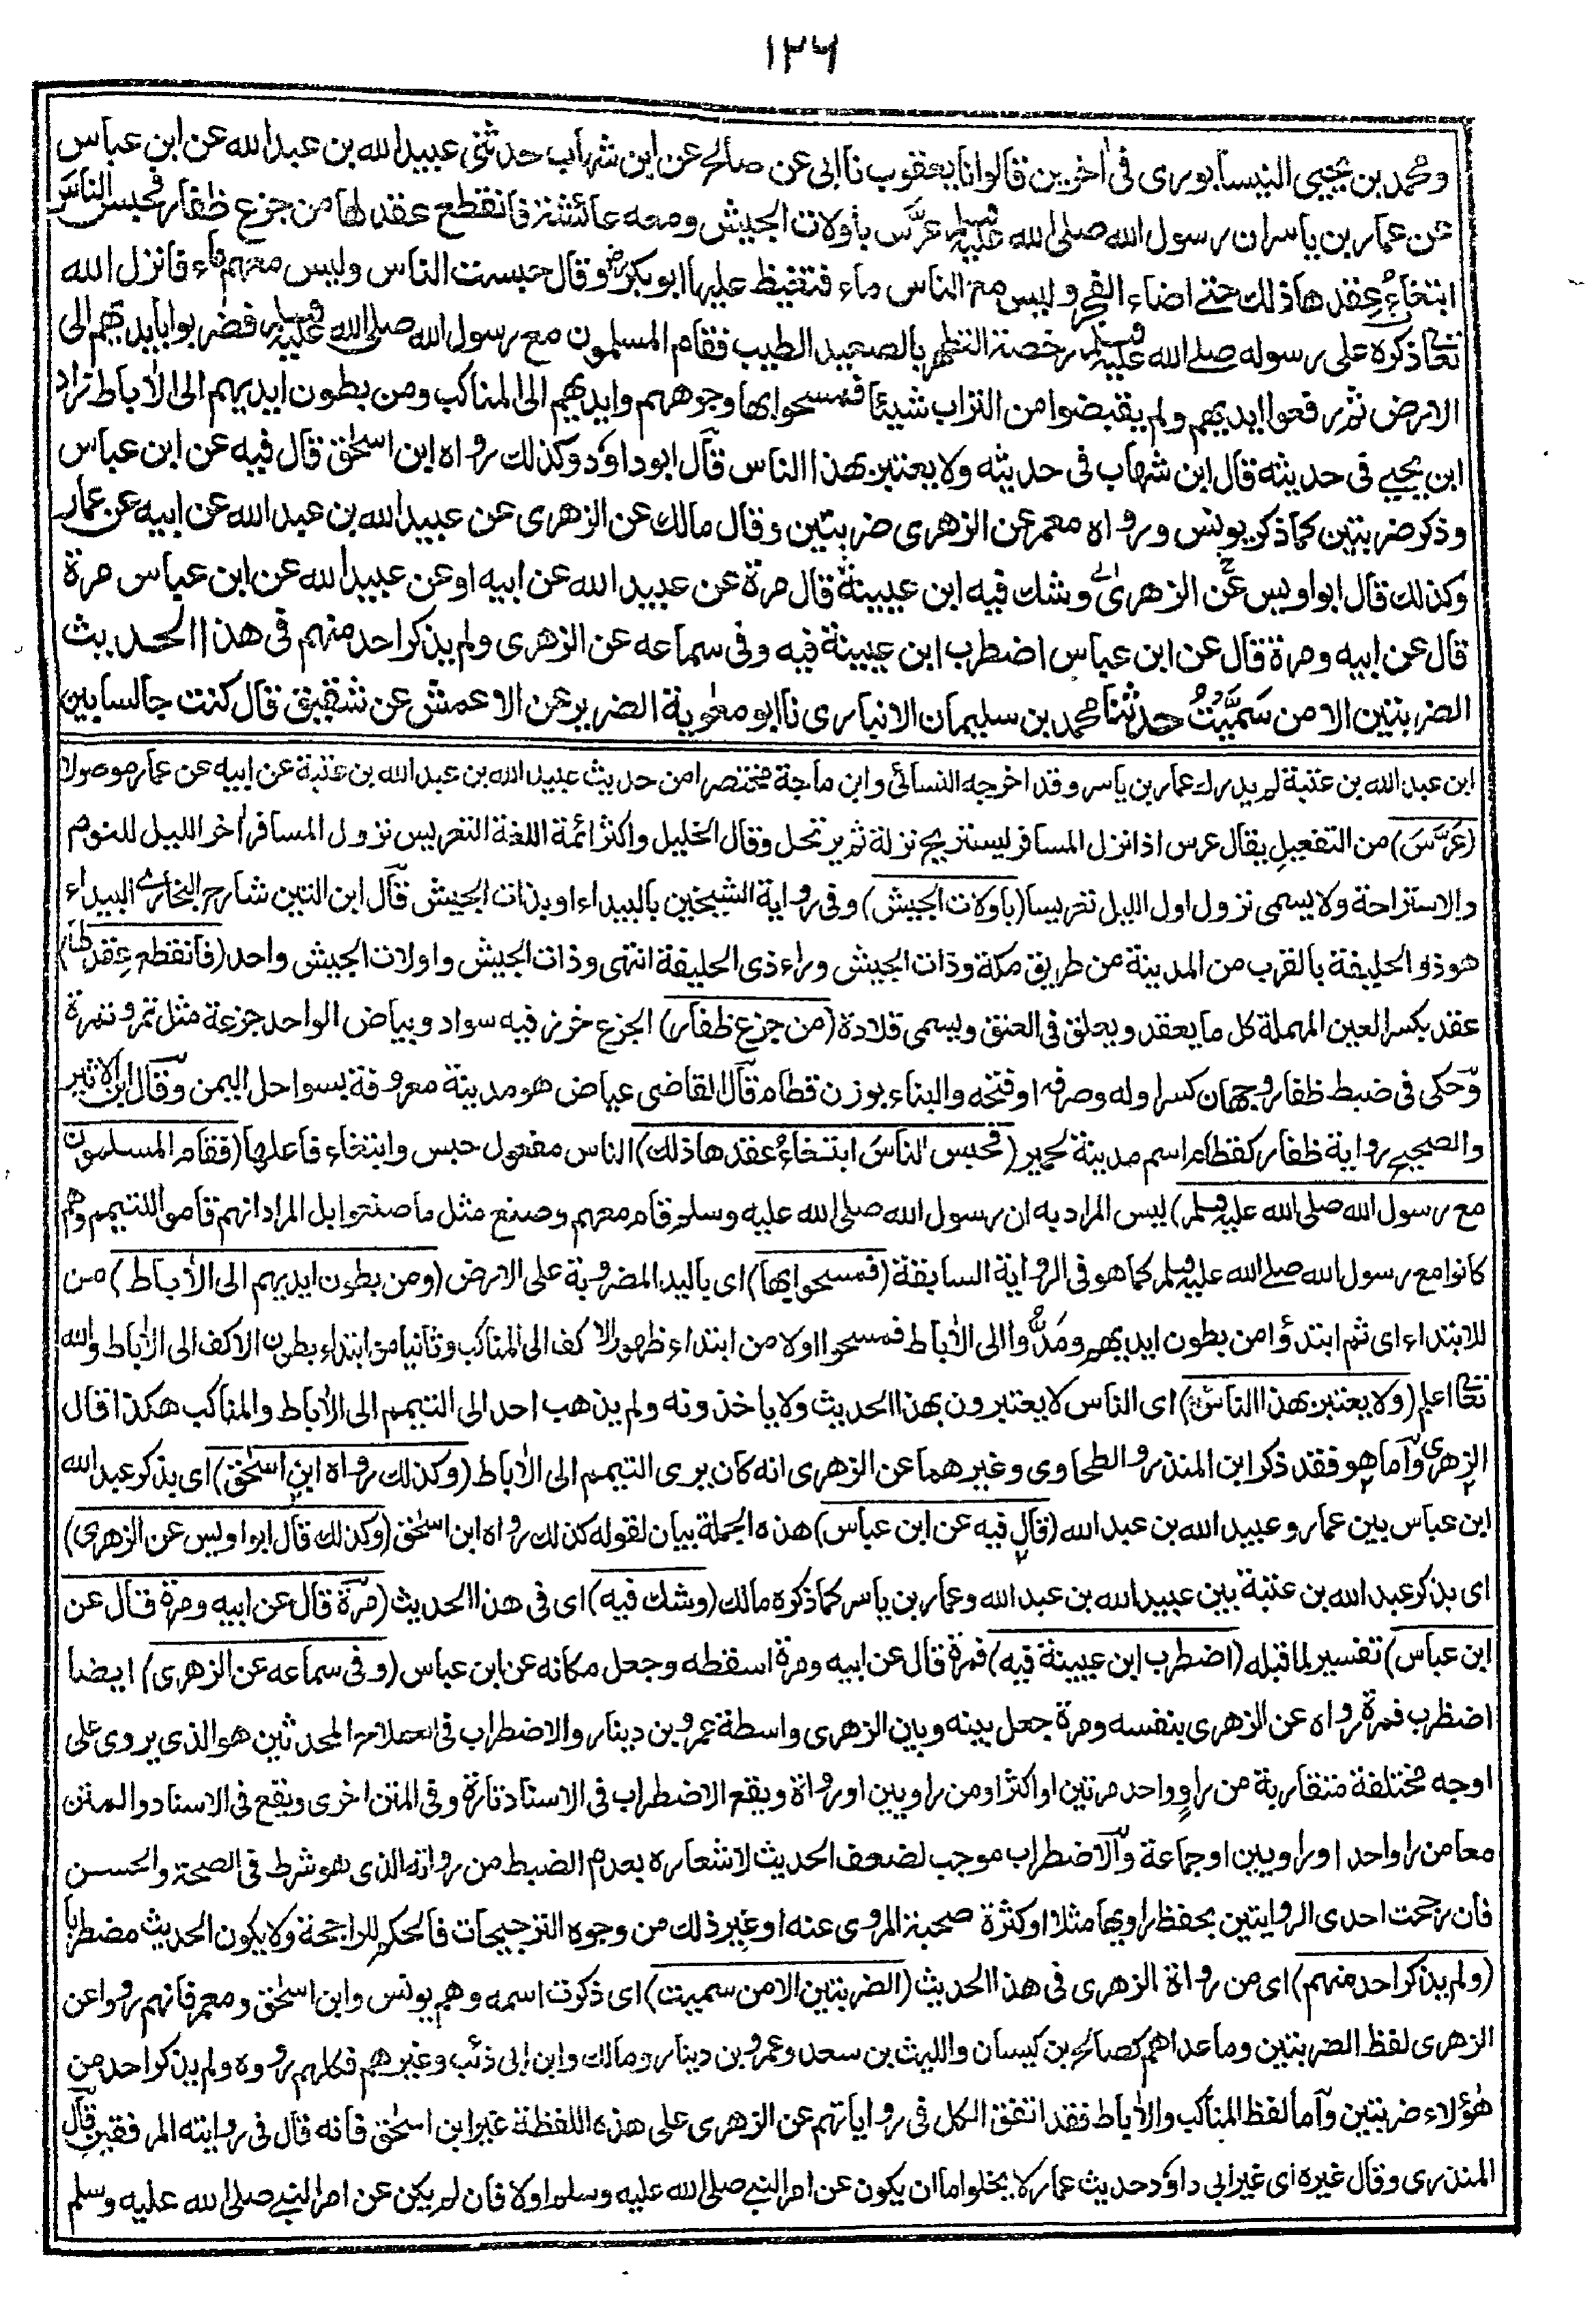 ١٣٦
ومحمد بن يحيى النيسابورى فى اٰخرين قالوا نا يعقوب نا ابى عن صالح عن ابن شهاب حدثنى عبيد الله بن عبد الله عن ابن عباس
عن عمار بن ياسر ان رسول الله صلى الله عليه وسلم عرَّس بأولات الجيش ومعه عائشة فانقطع عقد لها من جزع ظفار فحبس الناسَ
ابتغاءُ عِقدها ذلك حتى اضاء الفجر وليس مع الناس ماء فتغيظ عليها ابو بكر رض وقال حبست الناس وليس معهم ماء فانزل الله
تعالى ذكره على رسوله صلى الله عليه وسلم رخصة التطهر بالصعيد الطيب فقام المسلمون مع رسول الله صلى الله عليه وسلم فضربوا بايديهم الى
الارض ثم رفعوا ايديهم ولم يقبضوا من التراب شيئا فمسحوا بها وجوههم وايديهم الى المناكب ومن بطون ايديهم الى الاٰباط زاد
ابن يحيى فى حديثه قال ابن شهاب فى حديثه ولا يعتبر بهذا الناس قال ابو داؤد وكذلك رواه ابن اسحٰق قال فيه عن ابن عباس
وذكر ضربتين كما ذكر يونس ورواه معمر عن الزهرى ضربتين وقال مالك عن الزهرى عن عبيد الله بن عبد الله عن ابيه عن عمار
وكذلك قال ابو اويس عن الزهرى وشك فيه ابن عيينة قال مرة عن عبيد الله عن ابيه او عن عبيد الله عن ابن عباس مرة
قال عن ابيه ومرة قال عن ابن عباس اضطرب ابن عيينة فيه وفى سماعه عن الزهرى ولم يذكر احد منهم فى هذا الحديث
الضربتين الا من سَمَّيْتُ حدثنا محمد بن سليمان الانبارى نا ابو معٰوية الضرير عن الاعمش عن شقيق قال كنت جالسا بين
ابن عبد الله بن عتبة لم يدرك عمار بن ياسر وقد اخرجه النسائى وابن ماجة مختصرا من حديث عبيد الله بن عبد الله بن عتبة عن ابيه عن عمار موصولا
(عَرَّسَ) من التفعيل يقال عرس اذا نزل المسافر ليستريح نزلة ثم يرتحل وقال الخليل واكثر ائمة اللغة التعريس نزول المسافر اٰخر الليل للنوم
والاستراحة ولا يسمى نزول اول الليل تعريسا (بأولات الجيش) وفى رواية الشيخين بالبيداء او بذات الجيش قال ابن التين شارح البخارى البيداء
هو ذو الحليفة بالقرب من المدينة من طريق مكة وذات الجيش وراء ذى الحليفة انتهى وذات الجيش واولات الجيش واحد (فانقطع عِقد لها)
عقد بكسر العين المهملة كل ما يعقد ويعلق فى العنق ويسمى قلادة (من جزع ظفار) الجزع خرز فيه سواد وبياض الواحد جزعة مثل تمر وتمرة
وحكى فى ضبط ظفار وجهان كسر اوله وصرفه او فتحه والبناء بوزن قطام قال القاضى عياض هو مدينة معروفة بسواحل اليمن وقال ابن الاثير
والصحيح رواية ظفار كقطام اسم مدينة لحمير (فحبس الناسَ ابتغاءُ عقدها ذلك) الناس مفعول حبس وابتغاء فاعلها (فقام المسلمون
مع رسول الله صلى الله عليه وسلم) ليس المراد به ان رسول الله صلى الله عليه وسلم قام معهم وصنع مثل ما صنعوا بل المراد انهم قاموا للتيمم وهم
كانوا مع رسول الله صلى الله عليه وسلم كما هو فى الرواية السابقة (فمسحوا بها) اى باليد المضروبة على الارض (ومن بطون ايديهم الى الاٰباط) من
للابتداء اى ثم ابتدؤا من بطون ايديهم ومَدُّوا الى الاٰباط فمسحوا اولا من ابتداء ظهور الاكف الى المناكب وثانيا من ابتداء بطون الاكف الى الاٰباط والله
تعالى اعلم (ولا يعتبر بهذا الناس) اى الناس لا يعتبرون بهذا الحديث ولا ياخذونه ولم يذهب احد الى التيمم الى الاٰباط والمناكب هكذا قال
الزهرى واما هو فقد ذكر ابن المنذر والطحاوى وغيرهما عن الزهرى انه كان يرى التيمم الى الاٰباط (وكذلك رواه ابن اسحٰق) اى يذكر عبد الله
ابن عباس بين عمار وعبيد الله بن عبد الله (قال فيه عن ابن عباس) هذه الجملة بيان لقوله كذلك رواه ابن اسحٰق (وكذلك قال ابو اويس عن الزهرى)
اى بذكر عبد الله بن عتبة بين عبيد الله بن عبد الله وعمار بن ياسر كما ذكره مالك (وشك فيه) اى فى هذا الحديث (مرة قال عن ابيه ومرة قال عن
ابن عباس) تفسير لما قبله (اضطرب ابن عيينة فيه) فمرة قال عن ابيه ومرة اسقطه وجعل مكانه عن ابن عباس (وفى سماعه عن الزهرى) ايضا
اضطرب فمرة رواه عن الزهرى بنفسه ومرة جعل بينه وبين الزهرى واسطة عمرو بن دينار والاضطراب فى اصطلاح المحدثين هو الذى يروى على
اوجه مختلفة متقاربة من راوٍ واحد مرتين او اكثر او من راويين او رواة ويقع الاضطراب فى الاسناد تارة وفى المتن اخرى ويقع فى الاسناد والمتن
معا من راو واحد او راويين او جماعة والاضطراب موجب لضعف الحديث لاشعاره بعدم الضبط من رواته الذى هو شرط فى الصحة والحسن
فان رجحت احدى الروايتين بحفظ راويها مثلا او كثرة صحبة المروى عنه او غير ذلك من وجوه الترجيحات فالحكم للراجحة ولا يكون الحديث مضطربا
(ولم يذكر احد منهم) اى من رواة الزهرى فى هذا الحديث (الضربتين الا من سميت) اى ذكرت اسمه وهم يونس وابن اسحٰق ومعمر فانهم رووا عن
الزهرى لفظ الضربتين وما عداهم كصالح بن كيسان والليث بن سعد وعمرو بن دينار ومالك وابن ابى ذئب وغيرهم فكلهم رووه ولم يذكر احد من
هٰؤلاء ضربتين واما لفظ المناكب والاٰباط فقد اتفق الكل فى رواياتهم عن الزهرى على هذه اللفظة غير ابن اسحٰق فانه قال فى روايته المرفقين قال
المنذرى وقال غيره اى غير ابى داؤد حديث عمار لا يخلو اما ان يكون عن امر النبى صلى الله عليه وسلم اولا فان لم يكن عن امر النبى صلى الله عليه وسلم